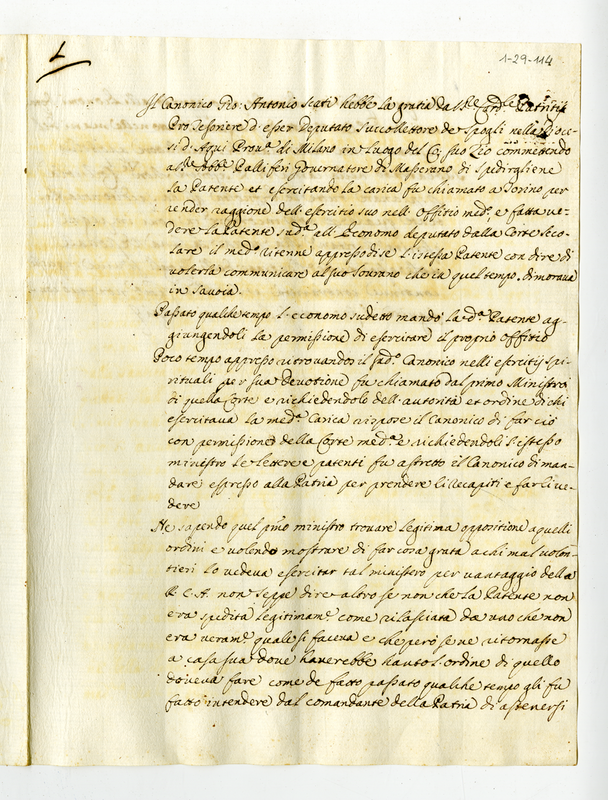 L
1-29-114
Il Canonico Gio: Antonio Scati hebbe la gratia da S.re Card.le Patritij
Pro Tesoriere d'esser Deputato Succollettore de Spogli nella Dioce-
si d'Aqui Prou.a di Milano in luogo del q. suo Zio commettendo
al S.re Abb.e Palliferi Governatore di Masserano di spedirgliene
la Patente et esercitando la carica fu chiamato a Torino per
render raggione dell'esercitio suo nell'offitio med.o e fatta ve-
dere la Patente sud.a all'Economo deputato dalla Corte Seco-
lare il med.o ritenne appresso di se l'istessa Patente con dire di
volerla communicare al suo Sovrano che in quel tempo dimorava
in Savoia.
Passato qualche tempo l'economo sudetto mandò la d.a Patente ag-
giungendoli la permissione di esercitare il proprio offitio
Poco tempo appresso ritrovandosi il sud.o Canonico nelli esercitij spi-
rituali per sua devotione fu chiamato dal primo Ministro
di quella Corte e richiedendolo dell'autorità et ordine di chi
esercitava la med.a Carica rispose il Canonico di far ciò
con permissione della Corte med.a e richiedendoli l'istesso
ministro le lettere e patenti fu astretto il Canonico di man-
dare espresso alla Patria per prendere li recapiti e farli ve-
dere
Ne sapendo quel pmo ministro trovare legitima oppositione a quelli
ordini e volendo mostrare di far cosa grata a chi mal volon-
tieri lo vedeva esercitar tal ministero per vantaggio della
R. C. A. non seppe dire altro se non che la Patente non
era spedita legitimam.e come rilasciata da uno che non
era veram.e quale si faceva e che però se ne ritornasse
a casa sua dove haverebbe hauto l'ordine di quello
doveva fare come de facto passato qualche tempo gli fu
facto intendere dal comandante della Patria di astenersi